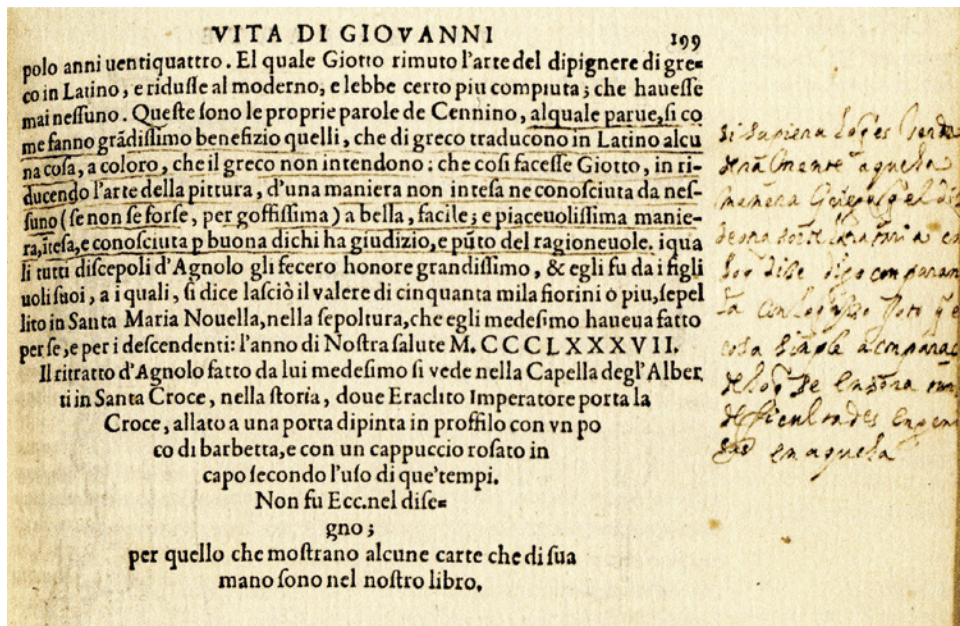 VITA DI GIOVANNI 199
polo anni uentiquattro. El quale Giotto rimuto l'arte del dipignere di gre=
co in Latino, e ridusse al moderno, e lebbe certo piu compiuta; che hauesse
mai nessuno. Queste sono le proprie parole de Cennino, alquale parue, si co
me fanno grādissimo benefizio quelli, che di greco traducono in Latino alcu
na cosa, a coloro, che il greco non intendono: che cosi facesse Giotto, in ri-
ducendo l'arte della pittura, d'una maniera non intesa ne conosciuta da nes-
suno (se non se forse, per goffissima) a bella, facile; e piaceuolissima manie-
ra, ītesa, e conosciuta p buona dichi ha giudizio, e pūto del ragioneuole. iqua
li tutti discepoli d'Agnolo gli fecero honore grandissimo, & egli fu da i figli
uoli suoi, a i quali, si dice lasciò il valere di cinquanta mila fiorini ò piu, sepel
lito in Santa Maria Nouella, nella sepoltura, che egli medesimo haueua fatto
per se, e per i descendenti: l'anno di Nostra salute M. CCCCLXXXVII.
Il ritratto d'Agnolo fatto da lui medesimo si vede nella Capella degl'Alber
ti in Santa Croce, nella storia, doue Eraclito Imperatore porta la
Croce, allato a una porta dipinta in proffilo con vn po
co di barbetta, e con un cappuccio rosato in
capo secondo l'uso di que'tempi.
Non fu Ecc. nel dise=
gno;
per quello che mostrano alcune carte che di sua
mano sono nel nostro libro.
si supiera
aquela
manera
dise digo comparan
cosa simple a comparac
dificultades
en aquela